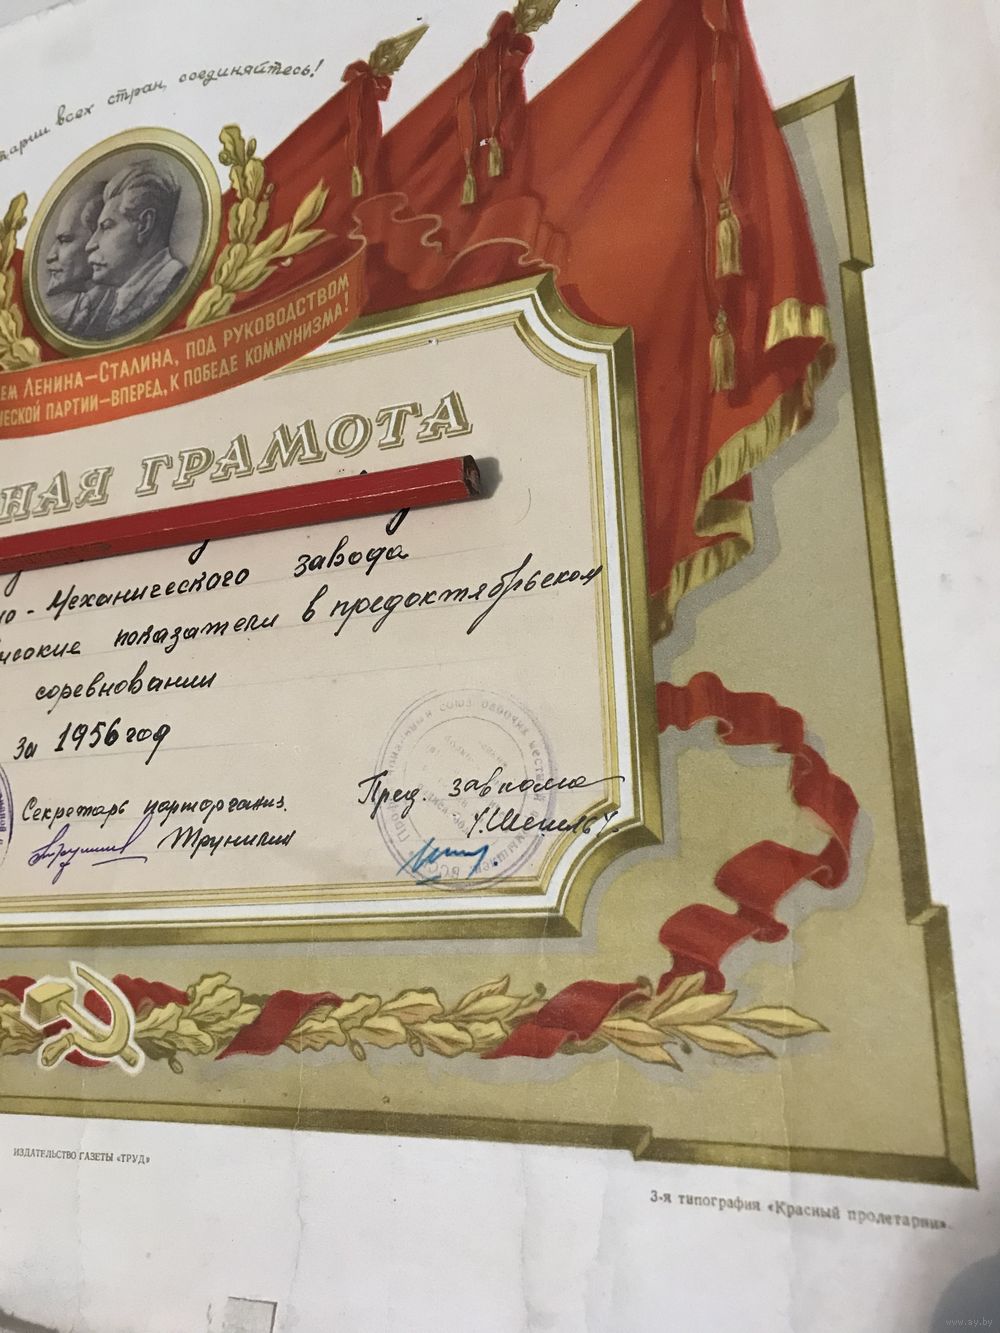 всех стран, соединяйтесь!
ЕМ ЛЕНИНА—СТАЛИНА, ПОД РУКОВОДСТВОМ
ЧЕСКОЙ ПАРТИИ—ВПЕРЕД, К ПОБЕДЕ КОММУНИЗМА!
НАЯ ГРАМОТА
но-Механического завода
высокие показатели в предоктябрьском
соревновании
за 1956 год
Секретарь парторганиз.
Пред. завкома
союз рабочих
ИЗДАТЕЛЬСТВО ГАЗЕТЫ «ТРУД»
3-я типография «Красный пролетарий».
www.ay.by